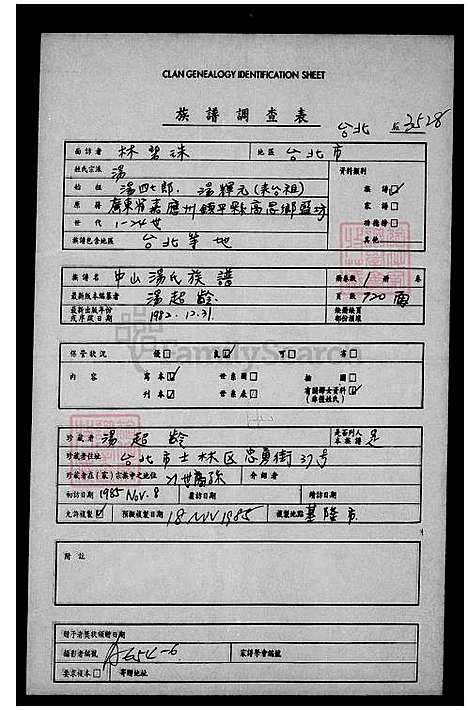 CLAN GENEALOGY IDENTIFICATION SHEET
族譜調查表
台北 3528
面訪者 林碧珠 地區 台北市
姓氏宗派 湯 資料類別
始祖 湯四七郎. 湯輝元(來台祖) 族譜☑
原籍 廣東省嘉應州鎮平縣高思鄉 家譜☐
世代 1-24世
族譜包含地區 台北等地 其他
族譜名 中山湯氏族譜 冊卷數 1 冊 卷
最新版本編纂者 湯超齡 頁數 720面
最新出版年份 1982.12.31. 缺冊缺頁
或序跋日期 部份損壞
保管狀況 優☐ 良☑ 可☐ 劣☐
內容 寫本☑ 世系圖☐ 插圖☐
刊本☑ 世系表☐ 有關婦女資料☑
(非僅姓氏)
珍藏者 湯超齡 是否列入本族譜 是
珍藏者住址 台北市士林區忠勇街37号
珍藏者在(家)宗族中之地位 21世裔孫 介紹者
初訪日期 1985 Nov. 8 覆訪日期 續訪日期
允許複製☑ 預擬複製日期 18 NOV 1985 複製地點 基隆市.
附註
贈予者獎狀頒贈日期
攝影者編號 A654-6 家譜學會編號
要求複本☐ 寄贈地址
FamilySearch